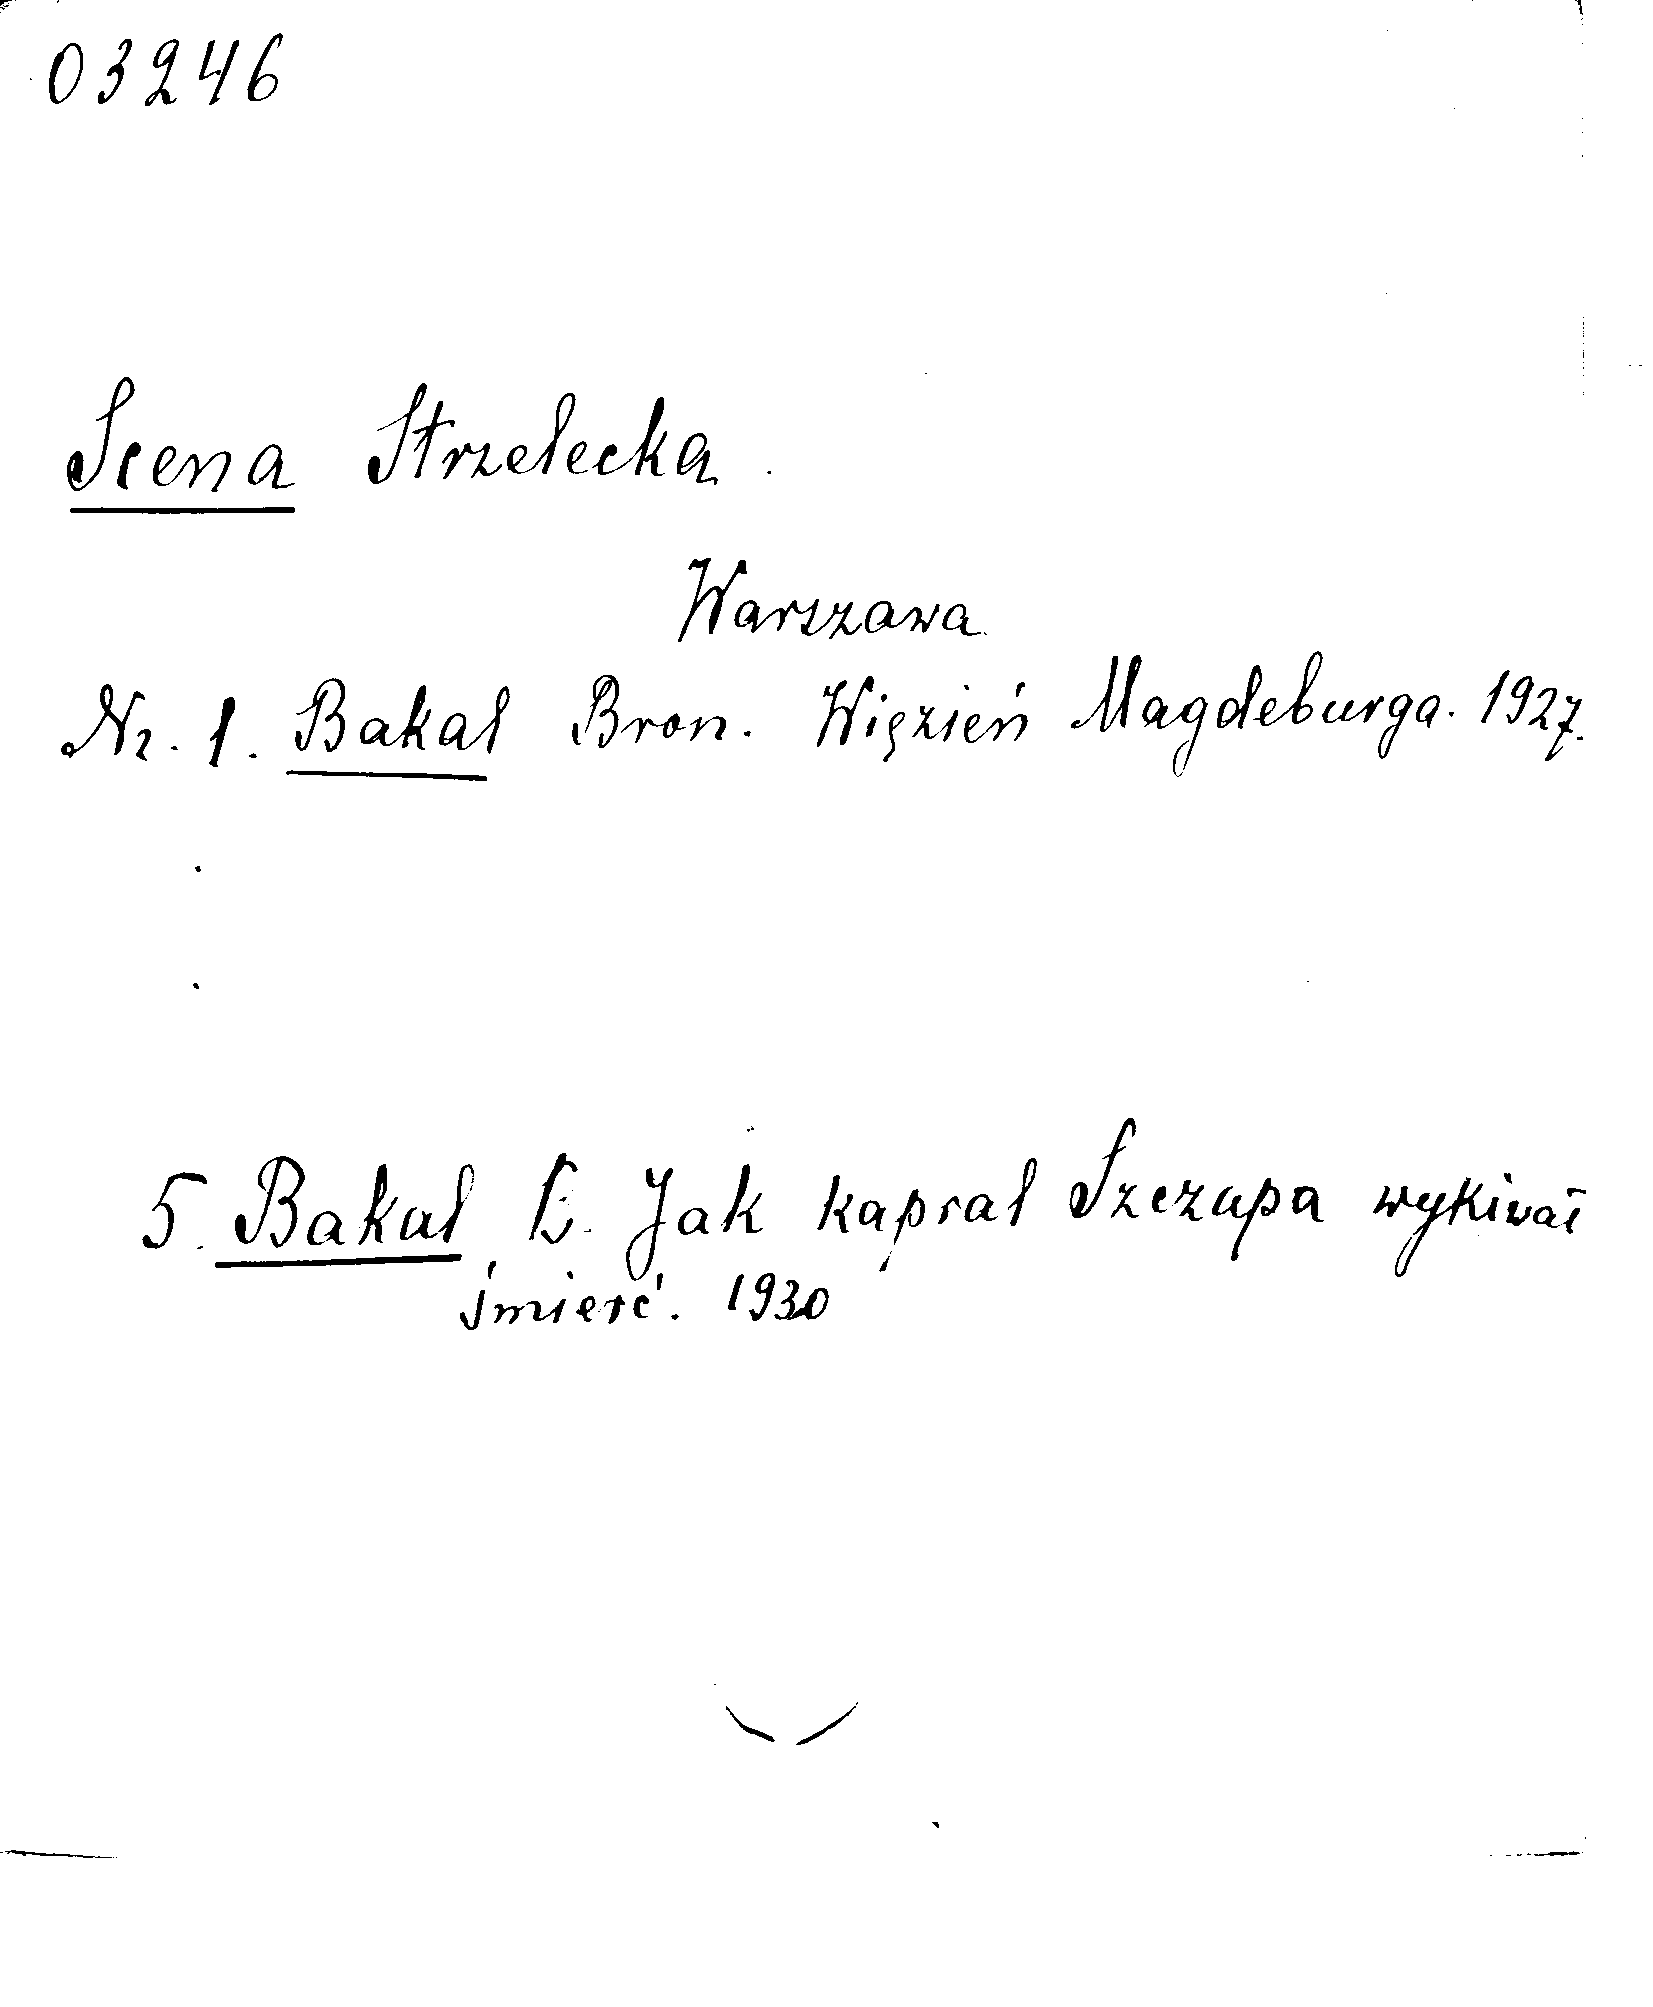 03246
Scena Strzelecka.
Warszawa.
Nr. 1. Bakal Bron. Więzień Magdeburga. 1927.
5. Bakal B. Jak kapral Szczapa wykiwał
śmierć. 1930